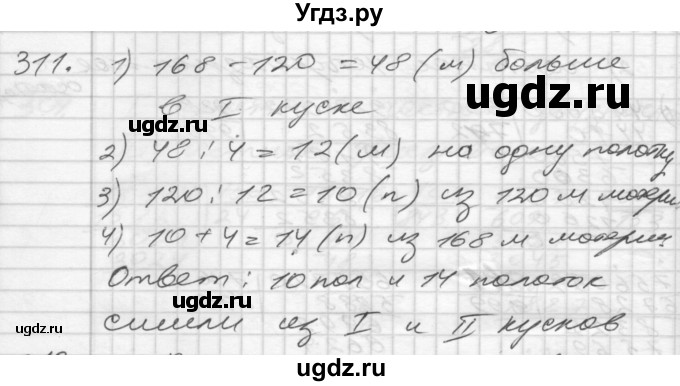 Угдз.ру
311. 1) 168 - 120 = 48 (м) больше
в I куске
2) 48 : 4 = 12 (м) на одну полотку
3) 120 : 12 = 10 (п) из 120 м матери
4) 10 + 4 = 14 (п) из 168 м матери
Ответ: 10 пол и 14 полоток
сшили из I и II кусков
ugdz.ru
ugdz.ru
ugdz.ru
ugdz.ru
ugdz.ru
ugdz.ru
угдз.ру